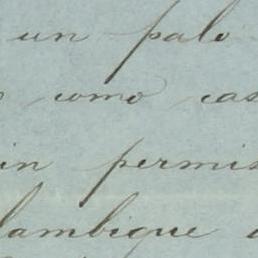 un palo
como cas
in permis
lambique